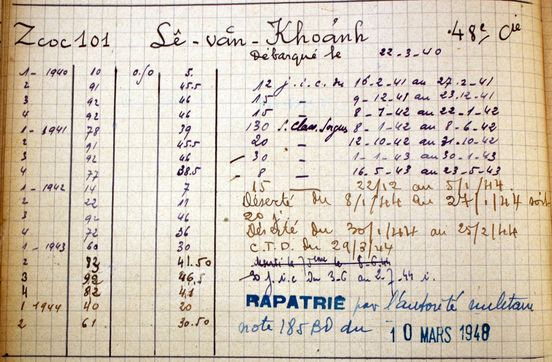 Zcoc 101 Lê-văn-Khoánh 48e Cie
Débarqué le 22-3-40
1-1940 10 0.50 5.
2 91 45.5 12 j.i.c. du 16-2-41 au 27-2-41
3 92 46 15 — 9-12-41 au 23.12-41
4 92 46 15 — 8-1-42 au 22-1-42
1-1941 78 39 130 S. Clair. Sorgues 8-1-42 au 8-6-42
2 91 45.5 20 — 12-10-42 au 31-10-42
3 92 46 30 — 1-1-43 au 30-1-43
4 77 38.5 8 — 16.5-43 au 23-5-43
1-1942 14 7 15 — 22/12 au 5/1/44.
2 22 11 Déserté du 8/1/44 au 27/1/44 soit
3 92 46 20 j.
4 72 36 Déserté du 30/1/44 au 25/2/44
1-1943 60 30 C.T.D. du 29/3/44
2 83 41.50 le 8-6-44
3 93 46.5 30 j.i.c du 3-6 au 2-7-44 i.
4 82 41
1 1944 40 20 RAPATRIÉ par l'autorité militaire
2 61 30.50 note 185 BD du 10 MARS 1948